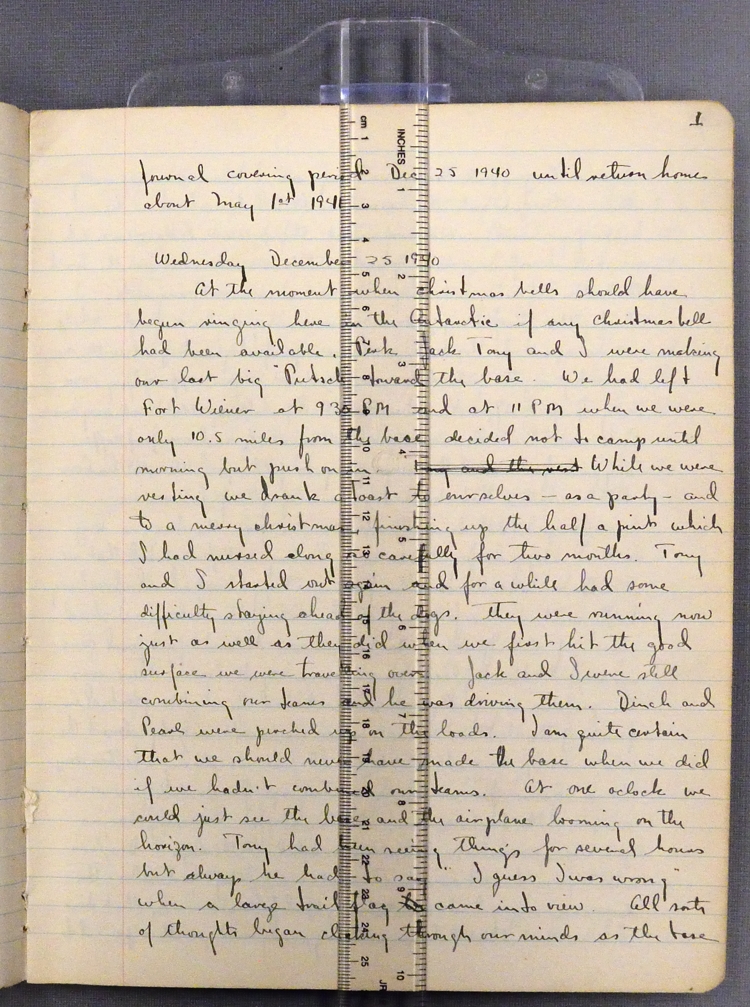 1
Journal covering period Dec 25 1940 until return home
about May 1st 1941
Wednesday December 25 1940
At the moment when christmas bells should have
begun ringing here in the Antarctic if any christmas bell
had been available. Perk Jack Tony and I were making
our last big "Putsch toward the base. We had left
Fort Wiener at 9 30 PM and at 11 PM when we were
only 10.5 miles from the base decided not to camp until
morning but push on in. Tony and the rest While we were
resting we drank a toast to ourselves – as a party – and
to a merry christmas, finishing up the half a pint which
I had nursed along so carefully for two months. Tony
and I started out again and for a while had some
difficulty staying ahead of the dogs. They were running now
just as well as they did when we first hit the good
surface we were travelling over. Jack and I were still
combining our teams and he was driving them. Dinah and
Pearl were perched up on the loads. I am quite certain
that we should never have made the base when we did
if we hadn't combined our teams. At one oclock we
could just see the base and the airplane looming on the
horizon. Tony had been seeing things for several hours
but always he had to say " I guess I was wrong"
when a large trail flag came into view. All sorts
of thoughts began clicking through our minds as the base
cm 1 2 3 4 5 6 7 8 9 10 11 12 13 14 15 16 17 18 19 20 21 22 23 24 25
INCHES 1 2 3 4 5 6 7 8 9 10